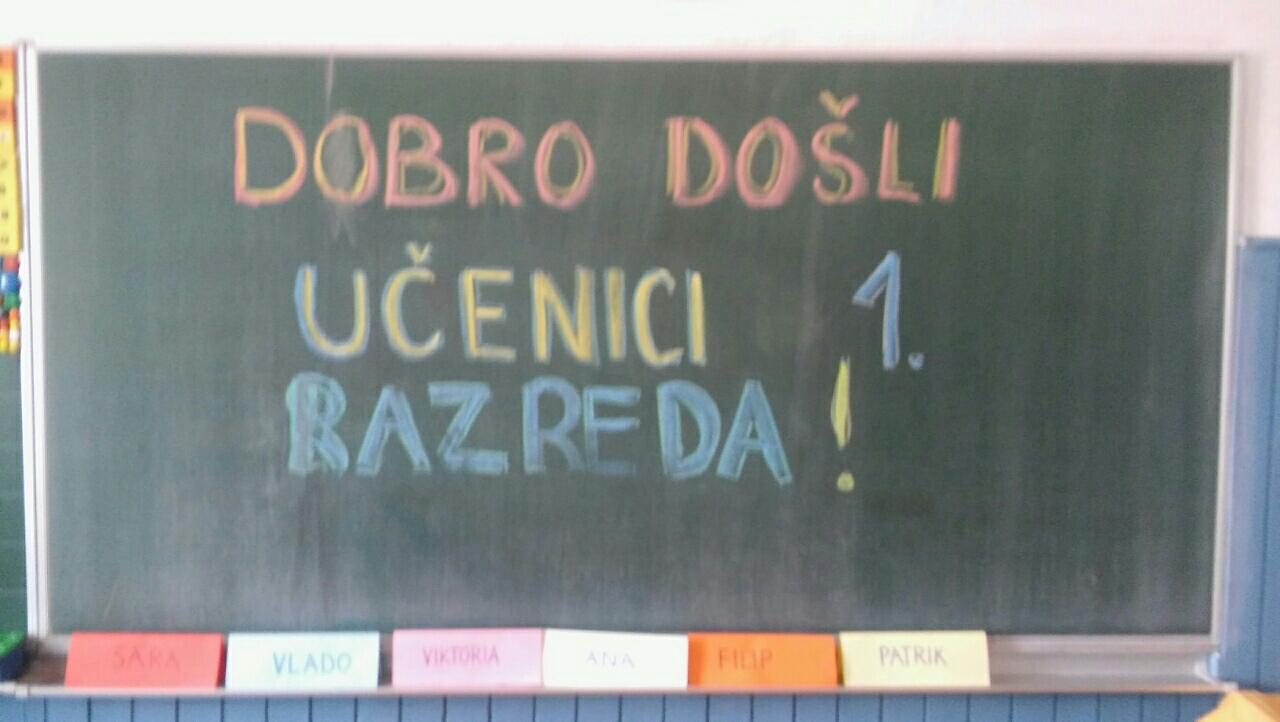 DOBRO DOŠLI
UČENICI 1.
RAZREDA!
SARA VLADO VIKTORIA ANA FILIP PATRIK